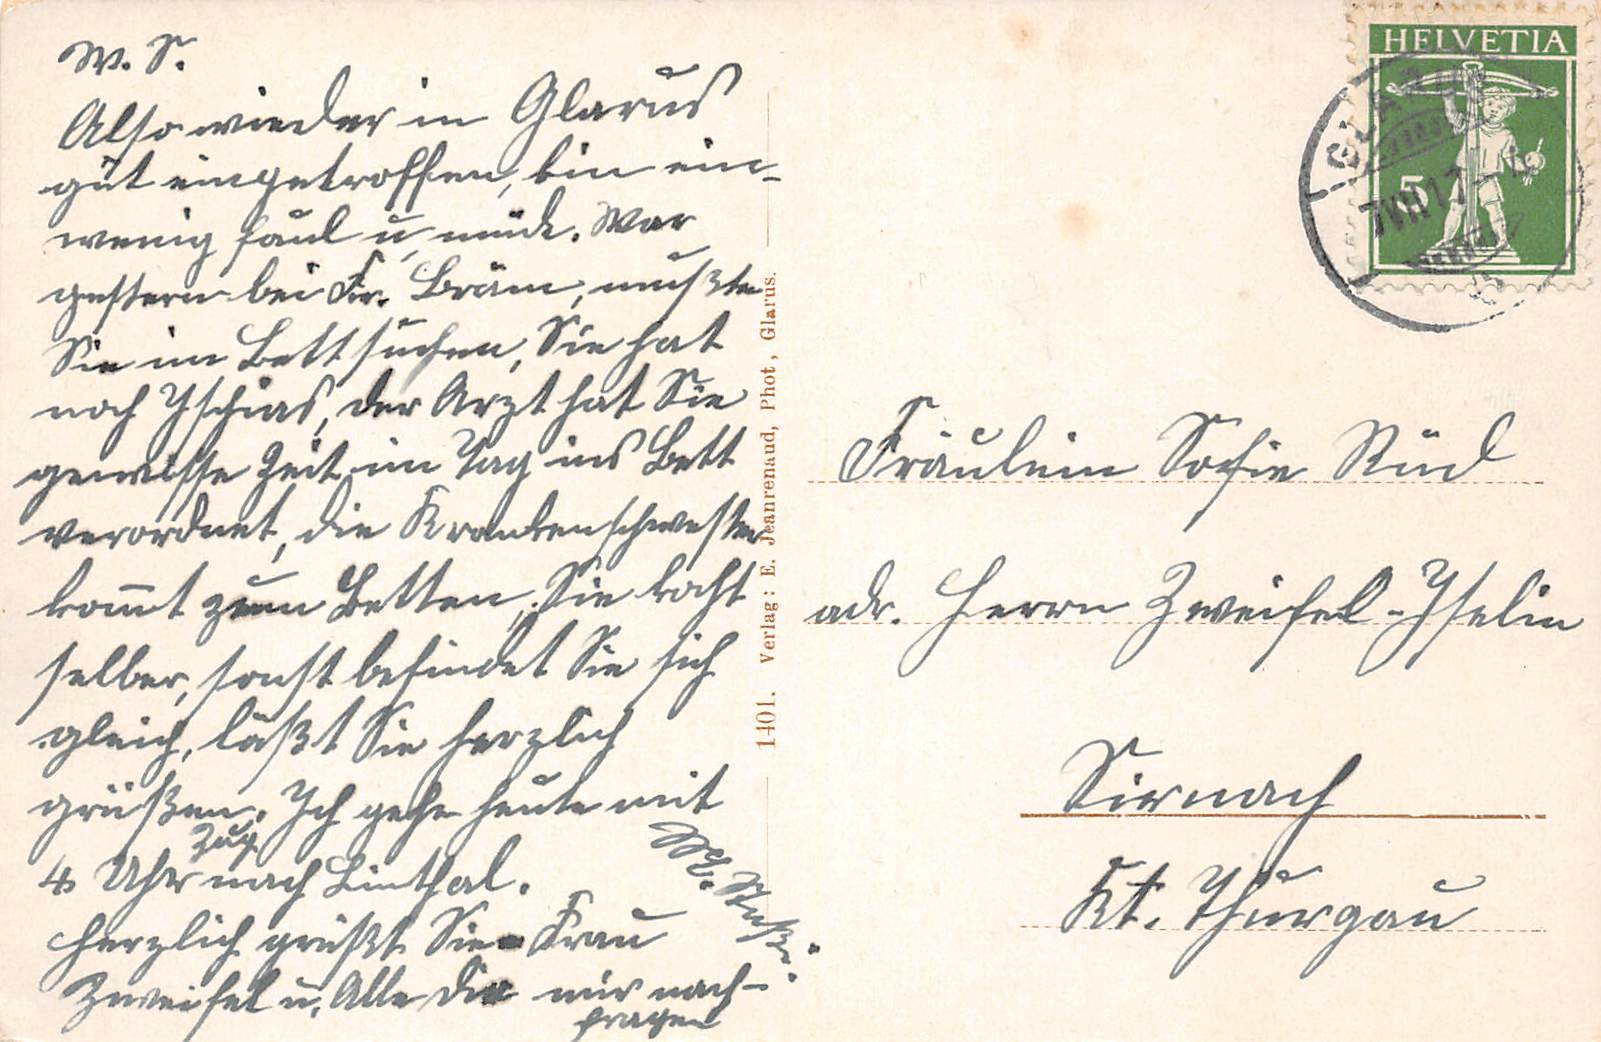 W. S.
Also wieder in Glarus
gut eingetroffen, bin ein-
wenig faul u. müde. War
gestern bei Fr. Bräm, mußte
Sie im Bett suchen, Sie hat
noch Ischias, der Arzt hat Sie
gewisse Zeit im Tag ins Bett
verordnet, die Krankenschwester
kom̅t zum Betten, Sie kocht
selber, sonst befindet Sie sich
gleich, läßt Sie herzlich
grüßen. Ich gehe heute mit
4 Uhr Zug nach Linthal.
Herzlich grüßt Sie Frau
Zweifel u. Alle die mir nach-
fragen
1401. Verlag: E. Jeanrenaud, Phot, Glarus.
HELVETIA
5
GLA
7 VIII 17 - 4
Fräulein Sofie Rüd
adr. Herrn Zweifel-Iselin
Sirnach
Kt. Thurgau